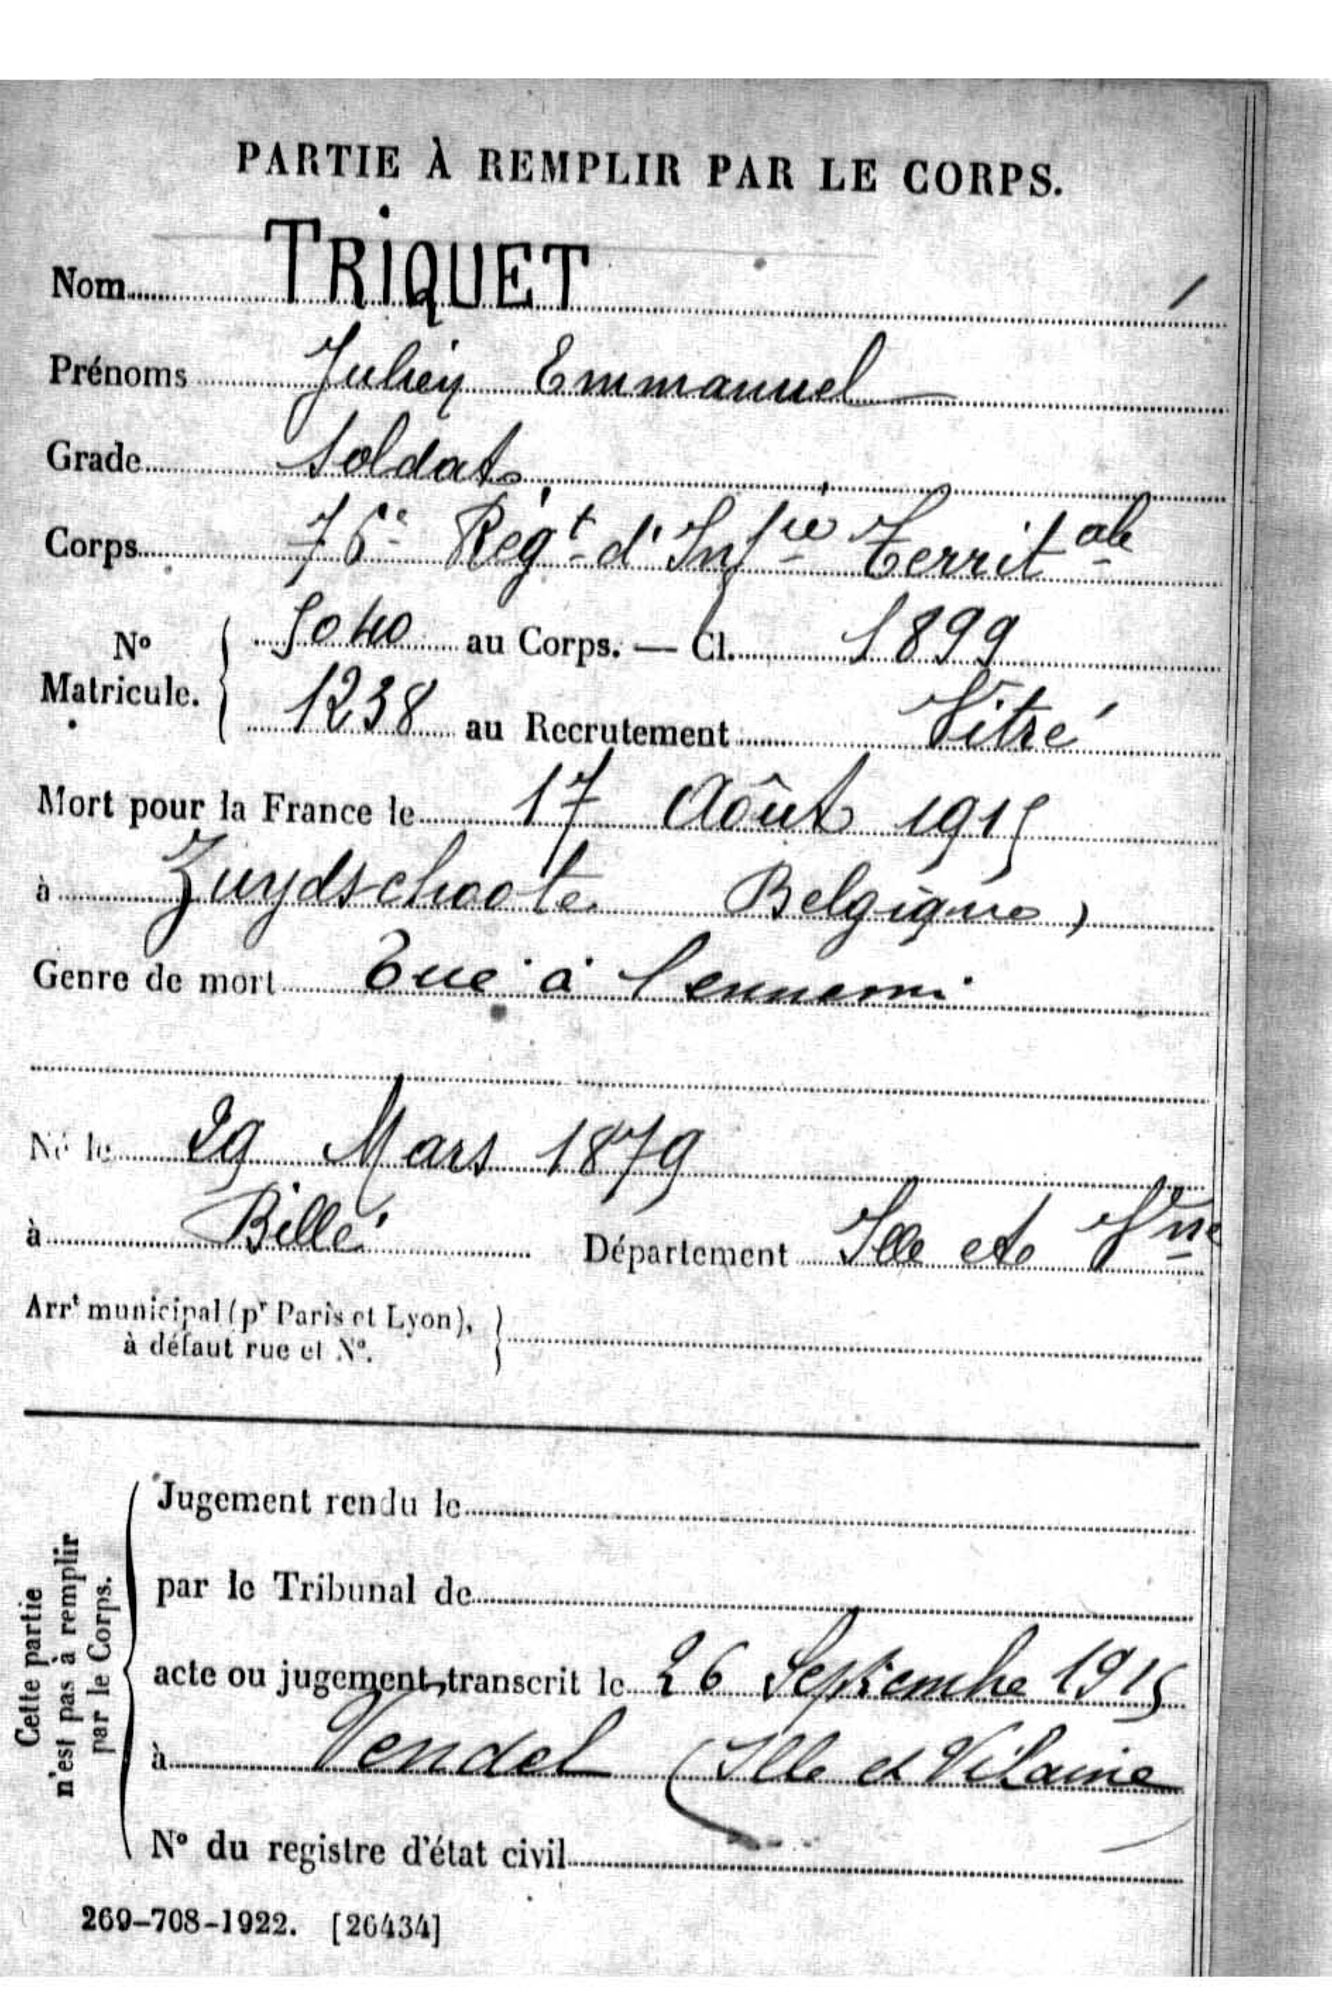 PARTIE À REMPLIR PAR LE CORPS.
Nom TRIQUET
Prénoms Julien Emmanuel
Grade Soldat
Corps 76e Régt d'Infrie Territale
No Matricule. { 5040 au Corps. — Cl. 1899
1238 au Recrutement Vitré
Mort pour la France le 17 Août 1915
à Zuydschoote Belgique)
Genre de mort Tué à l'ennemi
Né le 29 Mars 1879
à Billé Département Ille et Vne
Arrt municipal (pr Paris et Lyon), à défaut rue et No. }
Cette partie n'est pas à remplir par le Corps.
Jugement rendu le
par le Tribunal de
acte ou jugement transcrit le 26 Septembre 1915
à Vendel (Ille et Vilaine
No du registre d'état civil
269-708-1922. [26434]